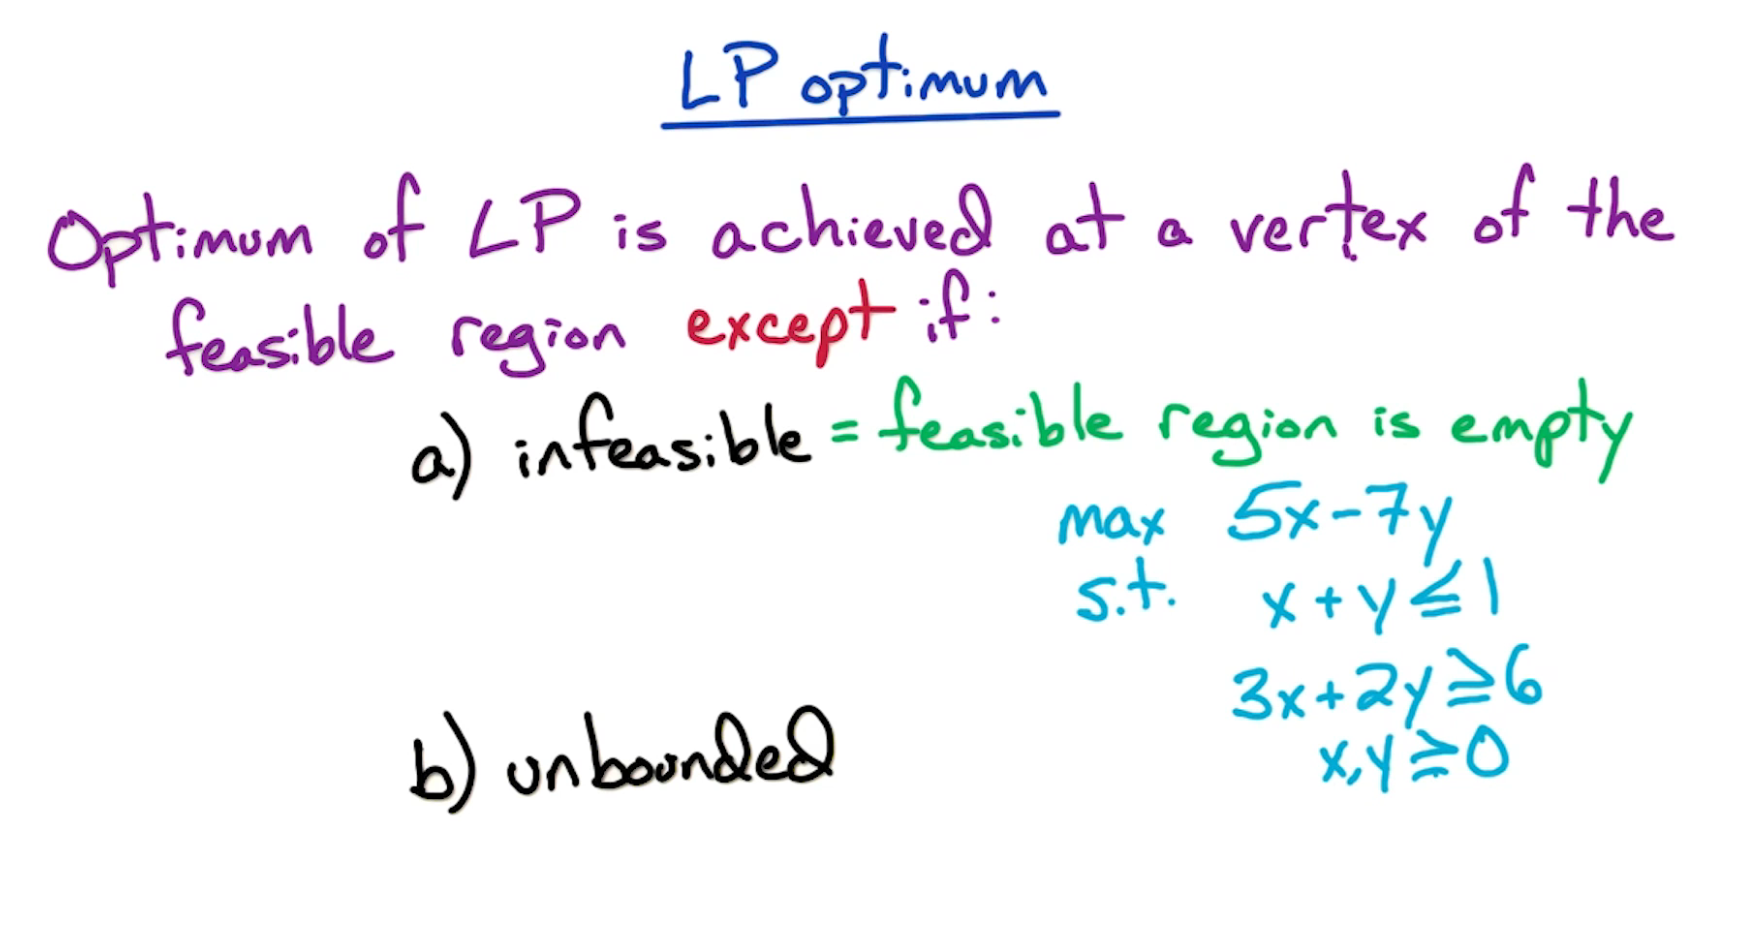 LP optimum
Optimum of LP is achieved at a vertex of the
feasible region except if:
a) infeasible = feasible region is empty
max 5x-7y
s.t. x + y ≤ 1
3x+2y ≥ 6
x,y ≥ 0
b) unbounded